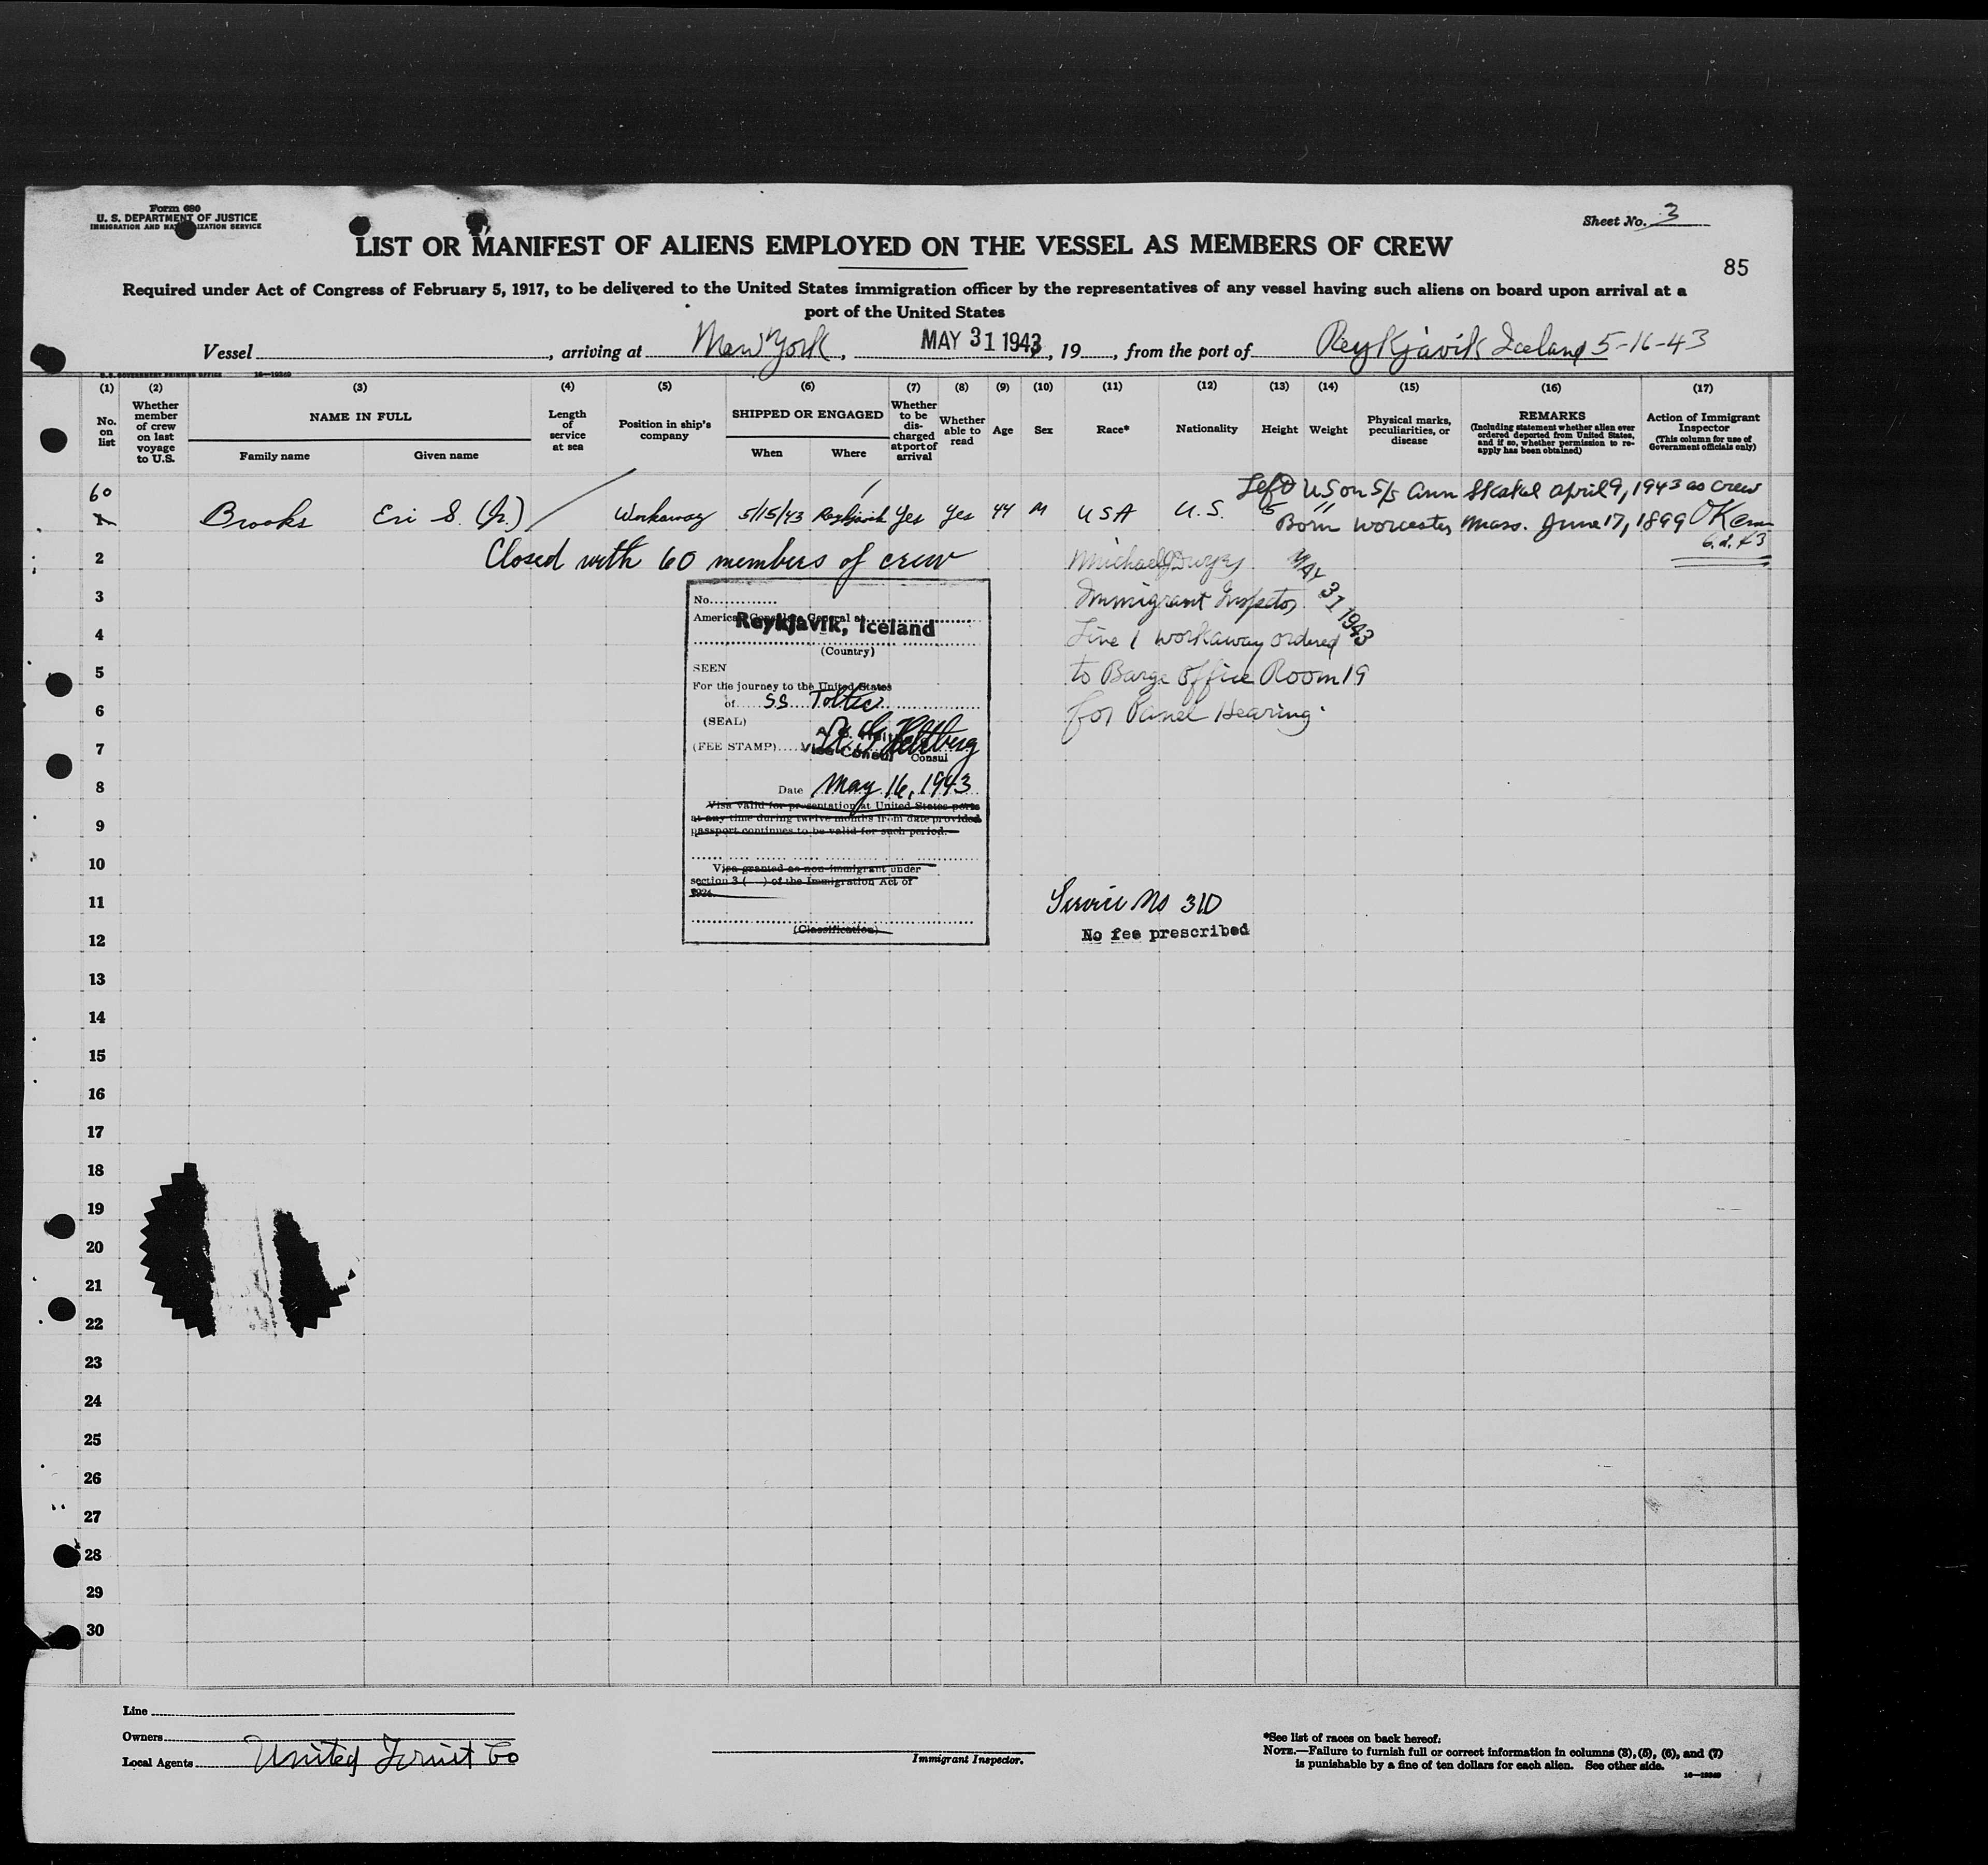 Form 680
U. S. DEPARTMENT OF JUSTICE
IMMIGRATION AND NATURALIZATION SERVICE
Sheet No. 3
LIST OR MANIFEST OF ALIENS EMPLOYED ON THE VESSEL AS MEMBERS OF CREW
85
Required under Act of Congress of February 5, 1917, to be delivered to the United States immigration officer by the representatives of any vessel having such aliens on board upon arrival at a
port of the United States
Vessel, arriving at New York, MAY 31 1943, 19, from the port of Reykjavik Iceland 5-16-43
U.S. GOVERNMENT PRINTING OFFICE 16—19349
(1) (2) (3) (4) (5) (6) (7) (8) (9) (10) (11) (12) (13) (14) (15) (16) (17)
No. on list
Whether member of crew on last voyage to U.S.
NAME IN FULL
Family name Given name
Length of service at sea
Position in ship's company
SHIPPED OR ENGAGED
When Where
Whether to be discharged at port of arrival
Whether able to read
Age
Sex
Race*
Nationality
Height
Weight
Physical marks, peculiarities, or disease
REMARKS
(Including statement whether alien ever ordered deported from United States, and if so, whether permission to reapply has been obtained)
Action of Immigrant Inspector
(This column for use of Government officials only)
60 Left US on S/S Ann Skakel April 9, 1943 as crew
1 Brooks Eri S. (Jr.) Workaway 5/15/43 Reykjavik Yes Yes 44 M USA U.S. Born Worcester Mass. June 17, 1899 OK
2 Closed with 60 members of crew Michael J Dwyer MAY 31 1943
3 Immigrant Inspector
4 Line 1 workaway ordered
5 to Barge Office Room 19
6 for Panel Hearing.
7
8
9
10
11 Service No 310
12 No fee prescribed
13
14
15
16
17
18
19
20
21
22
23
24
25
26
27
28
29
30
No.
American Consulate General at
Reykjavik, Iceland
(Country)
SEEN
For the journey to the United States
of S.S. Toltec
(SEAL)
(FEE STAMP) Vice Consul Consul
Date May 16, 1943
Visa valid for presentation at United States ports
at any time during twelve months from date provided
passport continues to be valid for such period.
Visa granted as non-immigrant under
section 3 ( ) of the Immigration Act of
1924.
(Classification)
Line
Owners
Local Agents United Fruit Co
Immigrant Inspector.
*See list of races on back hereof.
NOTE.—Failure to furnish full or correct information in columns (3), (5), (6), and (7)
is punishable by a fine of ten dollars for each alien. See other side.
16—19349